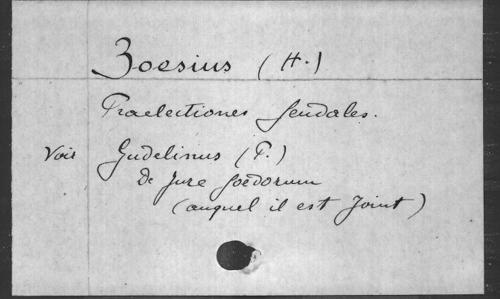 Zoesius (H.)
Praelectiones feudales.
Voir Gudelinus (P.)
De Jure foedorum
(auquel il est joint)